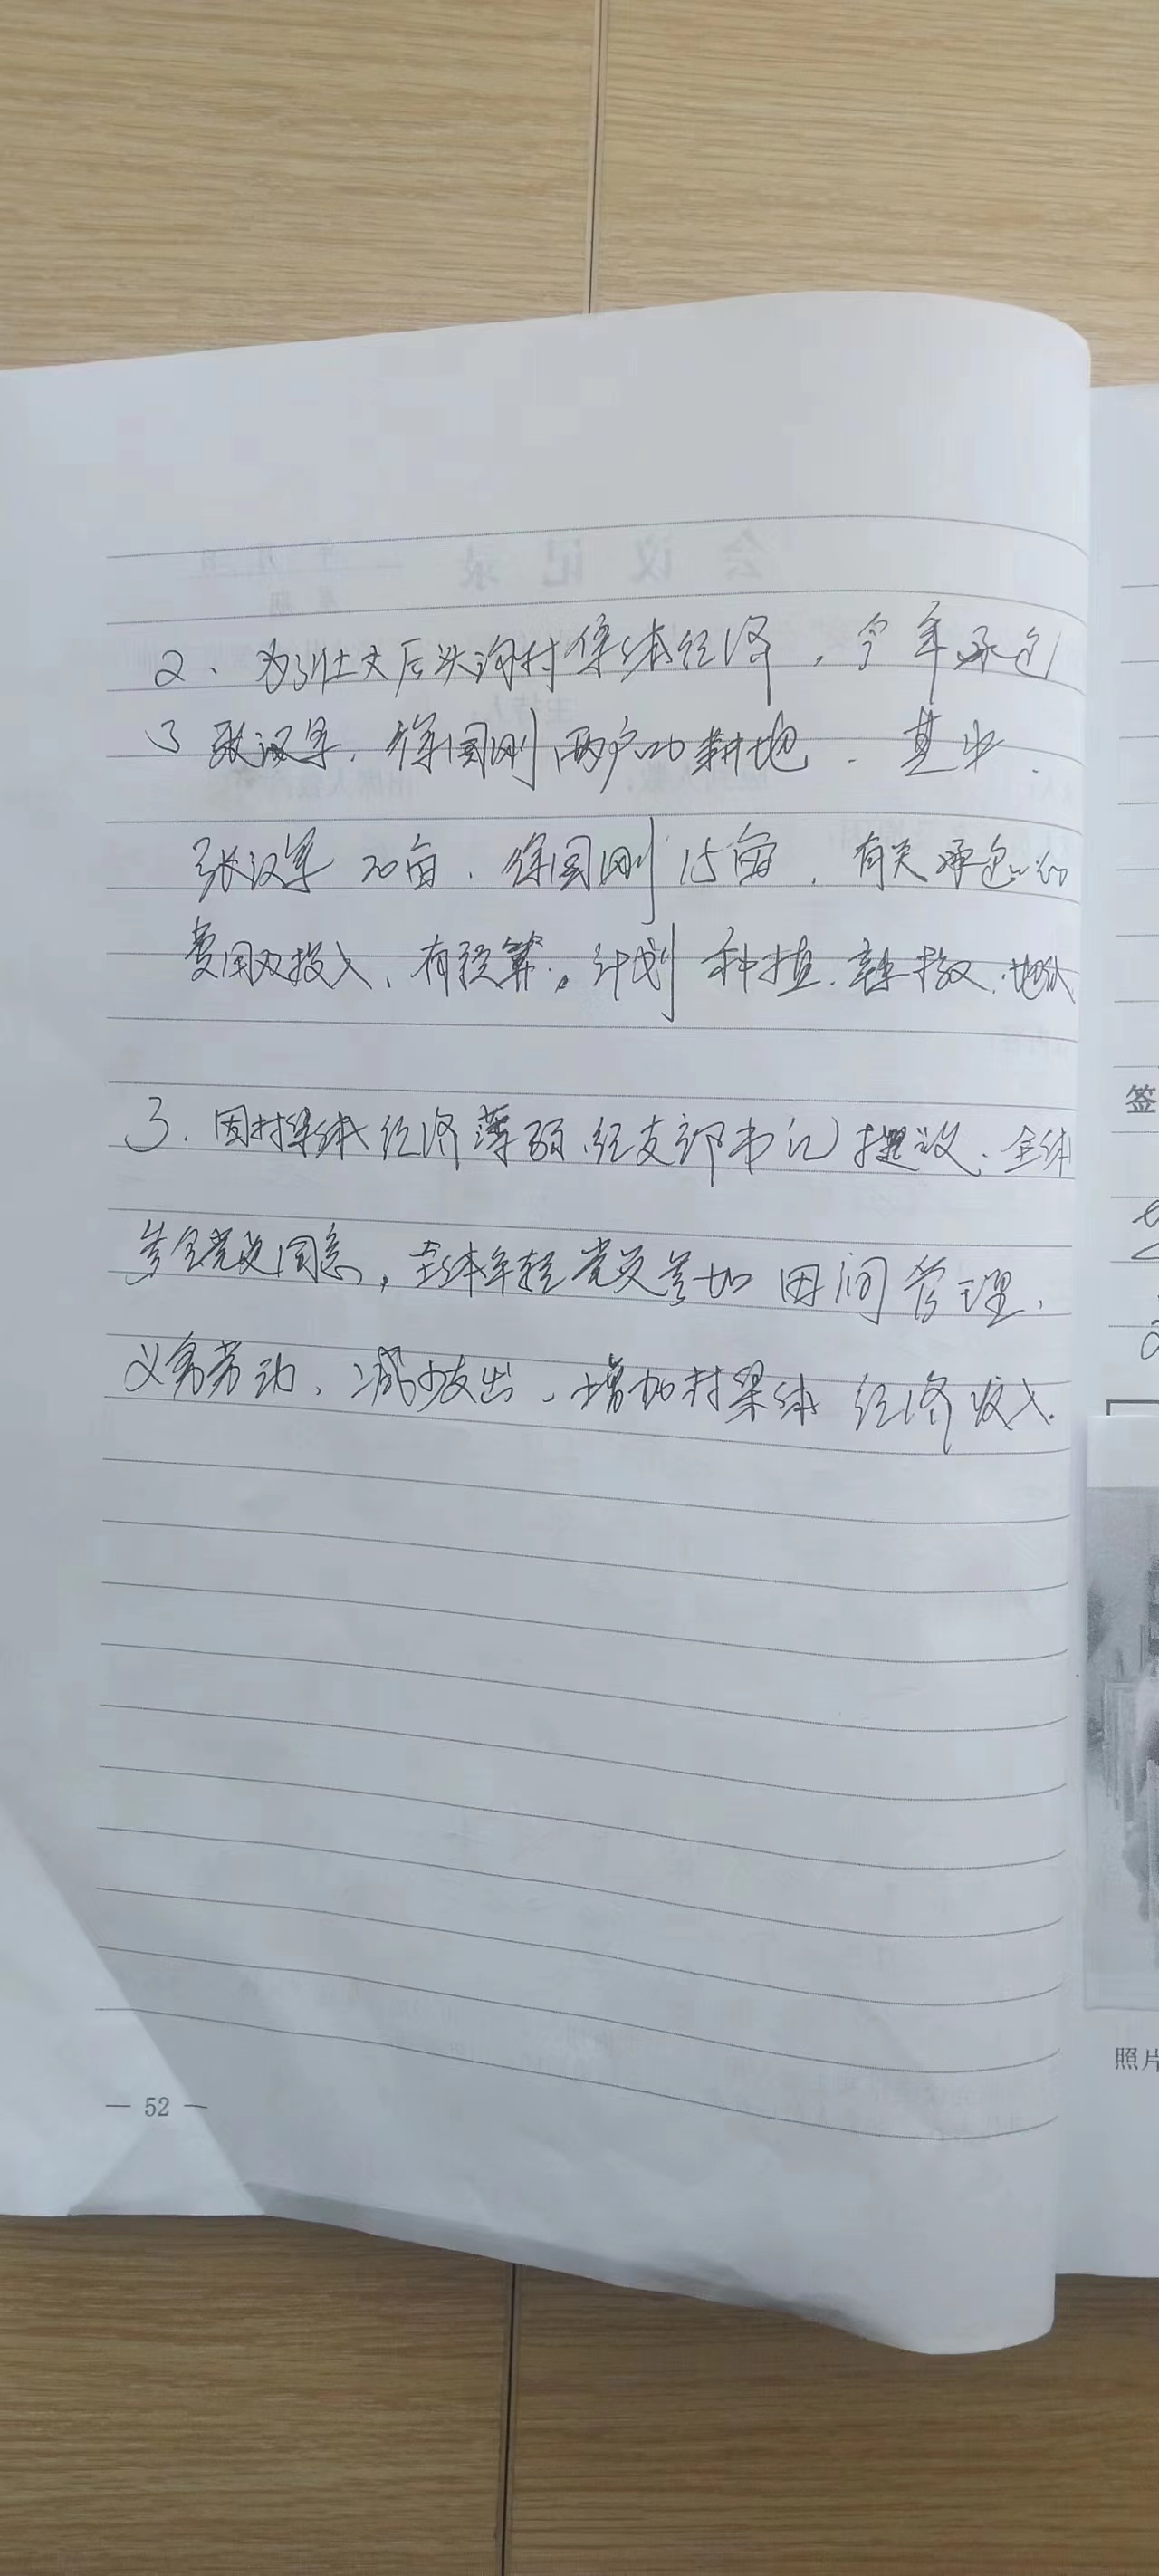 2、为了壮大后头沟村集体经济，今年承包
了张汉军、徐国刚两户的耕地．其中．
张汉军20亩．徐国刚15亩，有关承包的
费用及投入、有预算。计划种植．辣椒．地瓜
3．因村集体经济薄弱．经支部书记提议．全体
党员同意，全体年轻党员参加田间管理．
义务劳动、减少支出、增加村集体经济收入．
— 52 —
签
照片